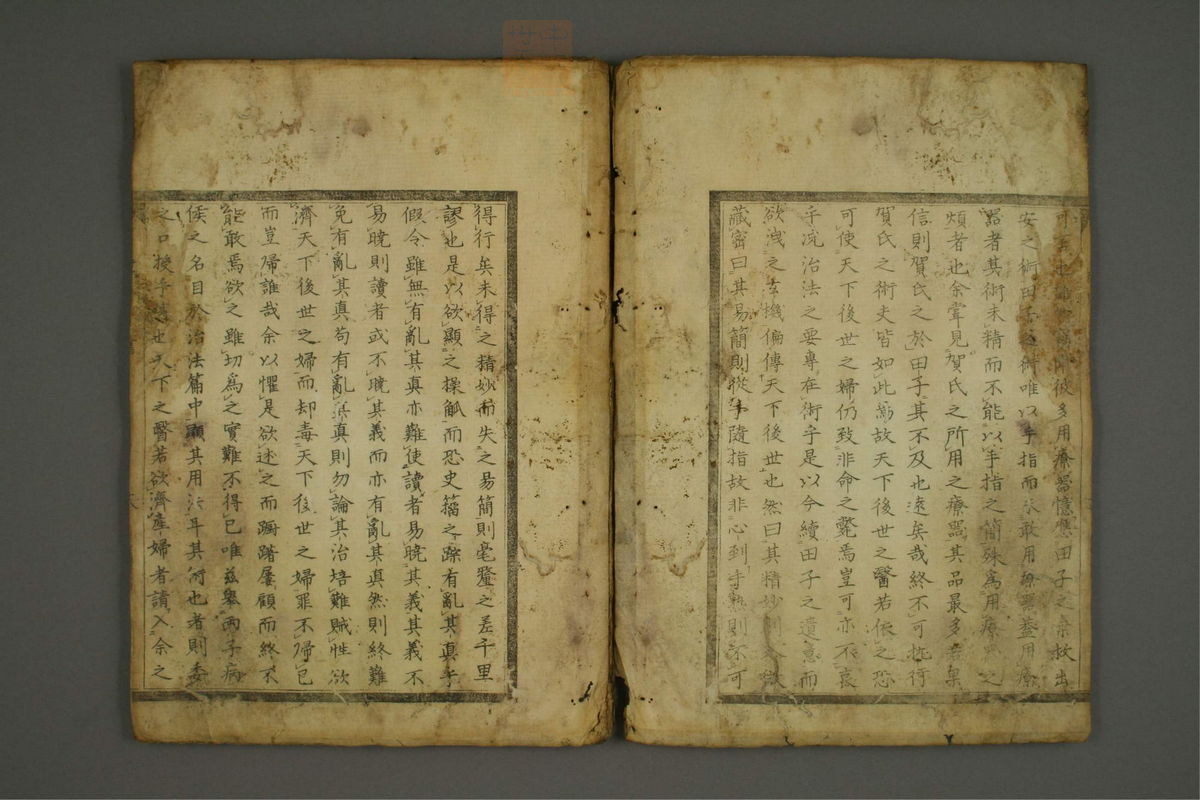 多用療器憶與田子之
安之術田子之術唯以手指而不敢用療器蓋用療
器者其術未精而不能以手指之簡殊為用療器之
煩者也余嘗見賀氏之所用之療器其品最多若
信則賀氏之於田子其不及也遠矣哉終不可
賀氏之術夫皆如此故天下後世之醫若依之恐
可使天下後世之婦仍致非命之斃焉豈可亦不哀
乎況治法之要專在術乎是以今續田子之遺意而
欲洩之玄機偏傳天下後世也然曰其精妙則
藏密曰其易簡則從手隨指故非心到手熟則不可
得行矣未得之精妙而失之易簡則毫釐之差千里
謬也是以欲顯之操觚而恐史籀之蹤有亂其真乎
假令雖無有亂其真亦難使讀者易曉其義其義不
易曉則讀者或不曉其義而亦有亂其真然則終難
免有亂其真苟有亂其真則勿論其治培難賊性欲
濟天下後世之婦而却毒天下後世之婦罪不歸已
而豈歸誰哉余以懼是欲述之而躊躇屢顧而終不
能敢焉欲之雖切為之實難不得已唯茲舉兩子病
候之名目於治法篇中顯其用法耳其術也者則委
之口授手 也天下之醫若欲濟產婦者請入余之